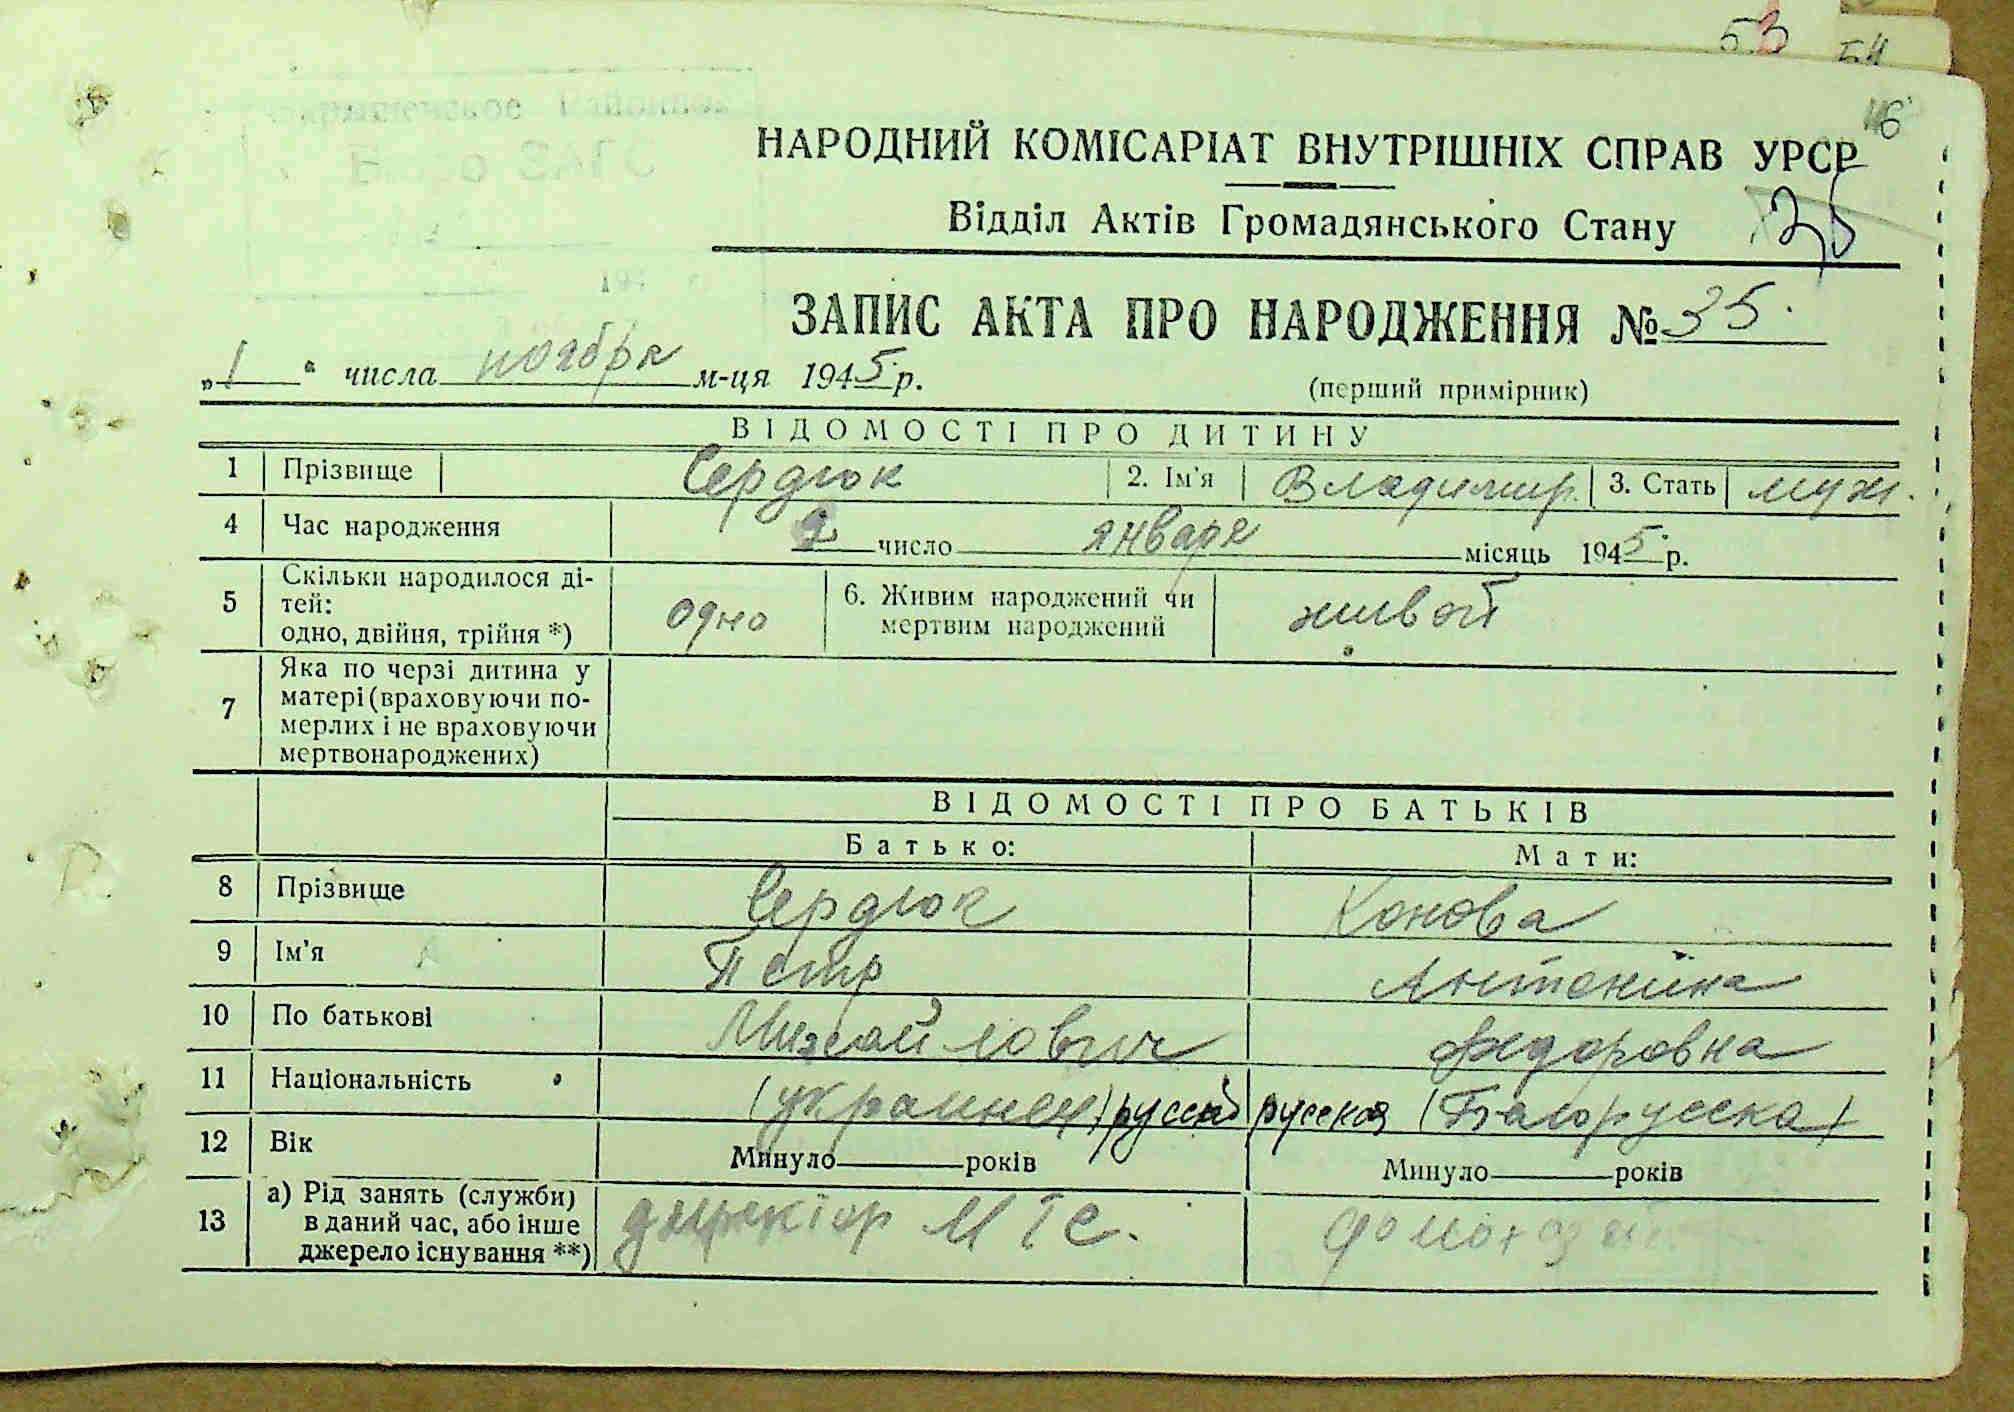 53 54
46
НАРОДНИЙ КОМІСАРІАТ ВНУТРІШНІХ СПРАВ УРСР
Відділ Актів Громадянського Стану 35
ЗАПИС АКТА ПРО НАРОДЖЕННЯ № 35.
„1“ числа ноября м-ця 1945 р.
(перший примірник)
ВІДОМОСТІ ПРО ДИТИНУ
1 Прізвище Сердюк 2. Ім'я Владимир. 3. Стать муж.
4 Час народження 2 число января місяць 1945 р.
5 Скільки народилося ді-
тей:
одно, двійня, трійня *) одно 6. Живим народжений чи
мертвим народжений живой
7 Яка по черзі дитина у
матері (враховуючи по-
мерлих і не враховуючи
мертвонароджених)
ВІДОМОСТІ ПРО БАТЬКІВ
Батько: Мати:
8 Прізвище Сердюк Конова
9 Ім'я Петр Антонина
10 По батькові Михайлович Федоровна
11 Національність (украинец) русский русская (Белорусска)
12 Вік Минуло роки́в Минуло років
13 а) Рід занять (служби)
в даний час, або інше
джерело існування **) директор МТС. домохозяй.